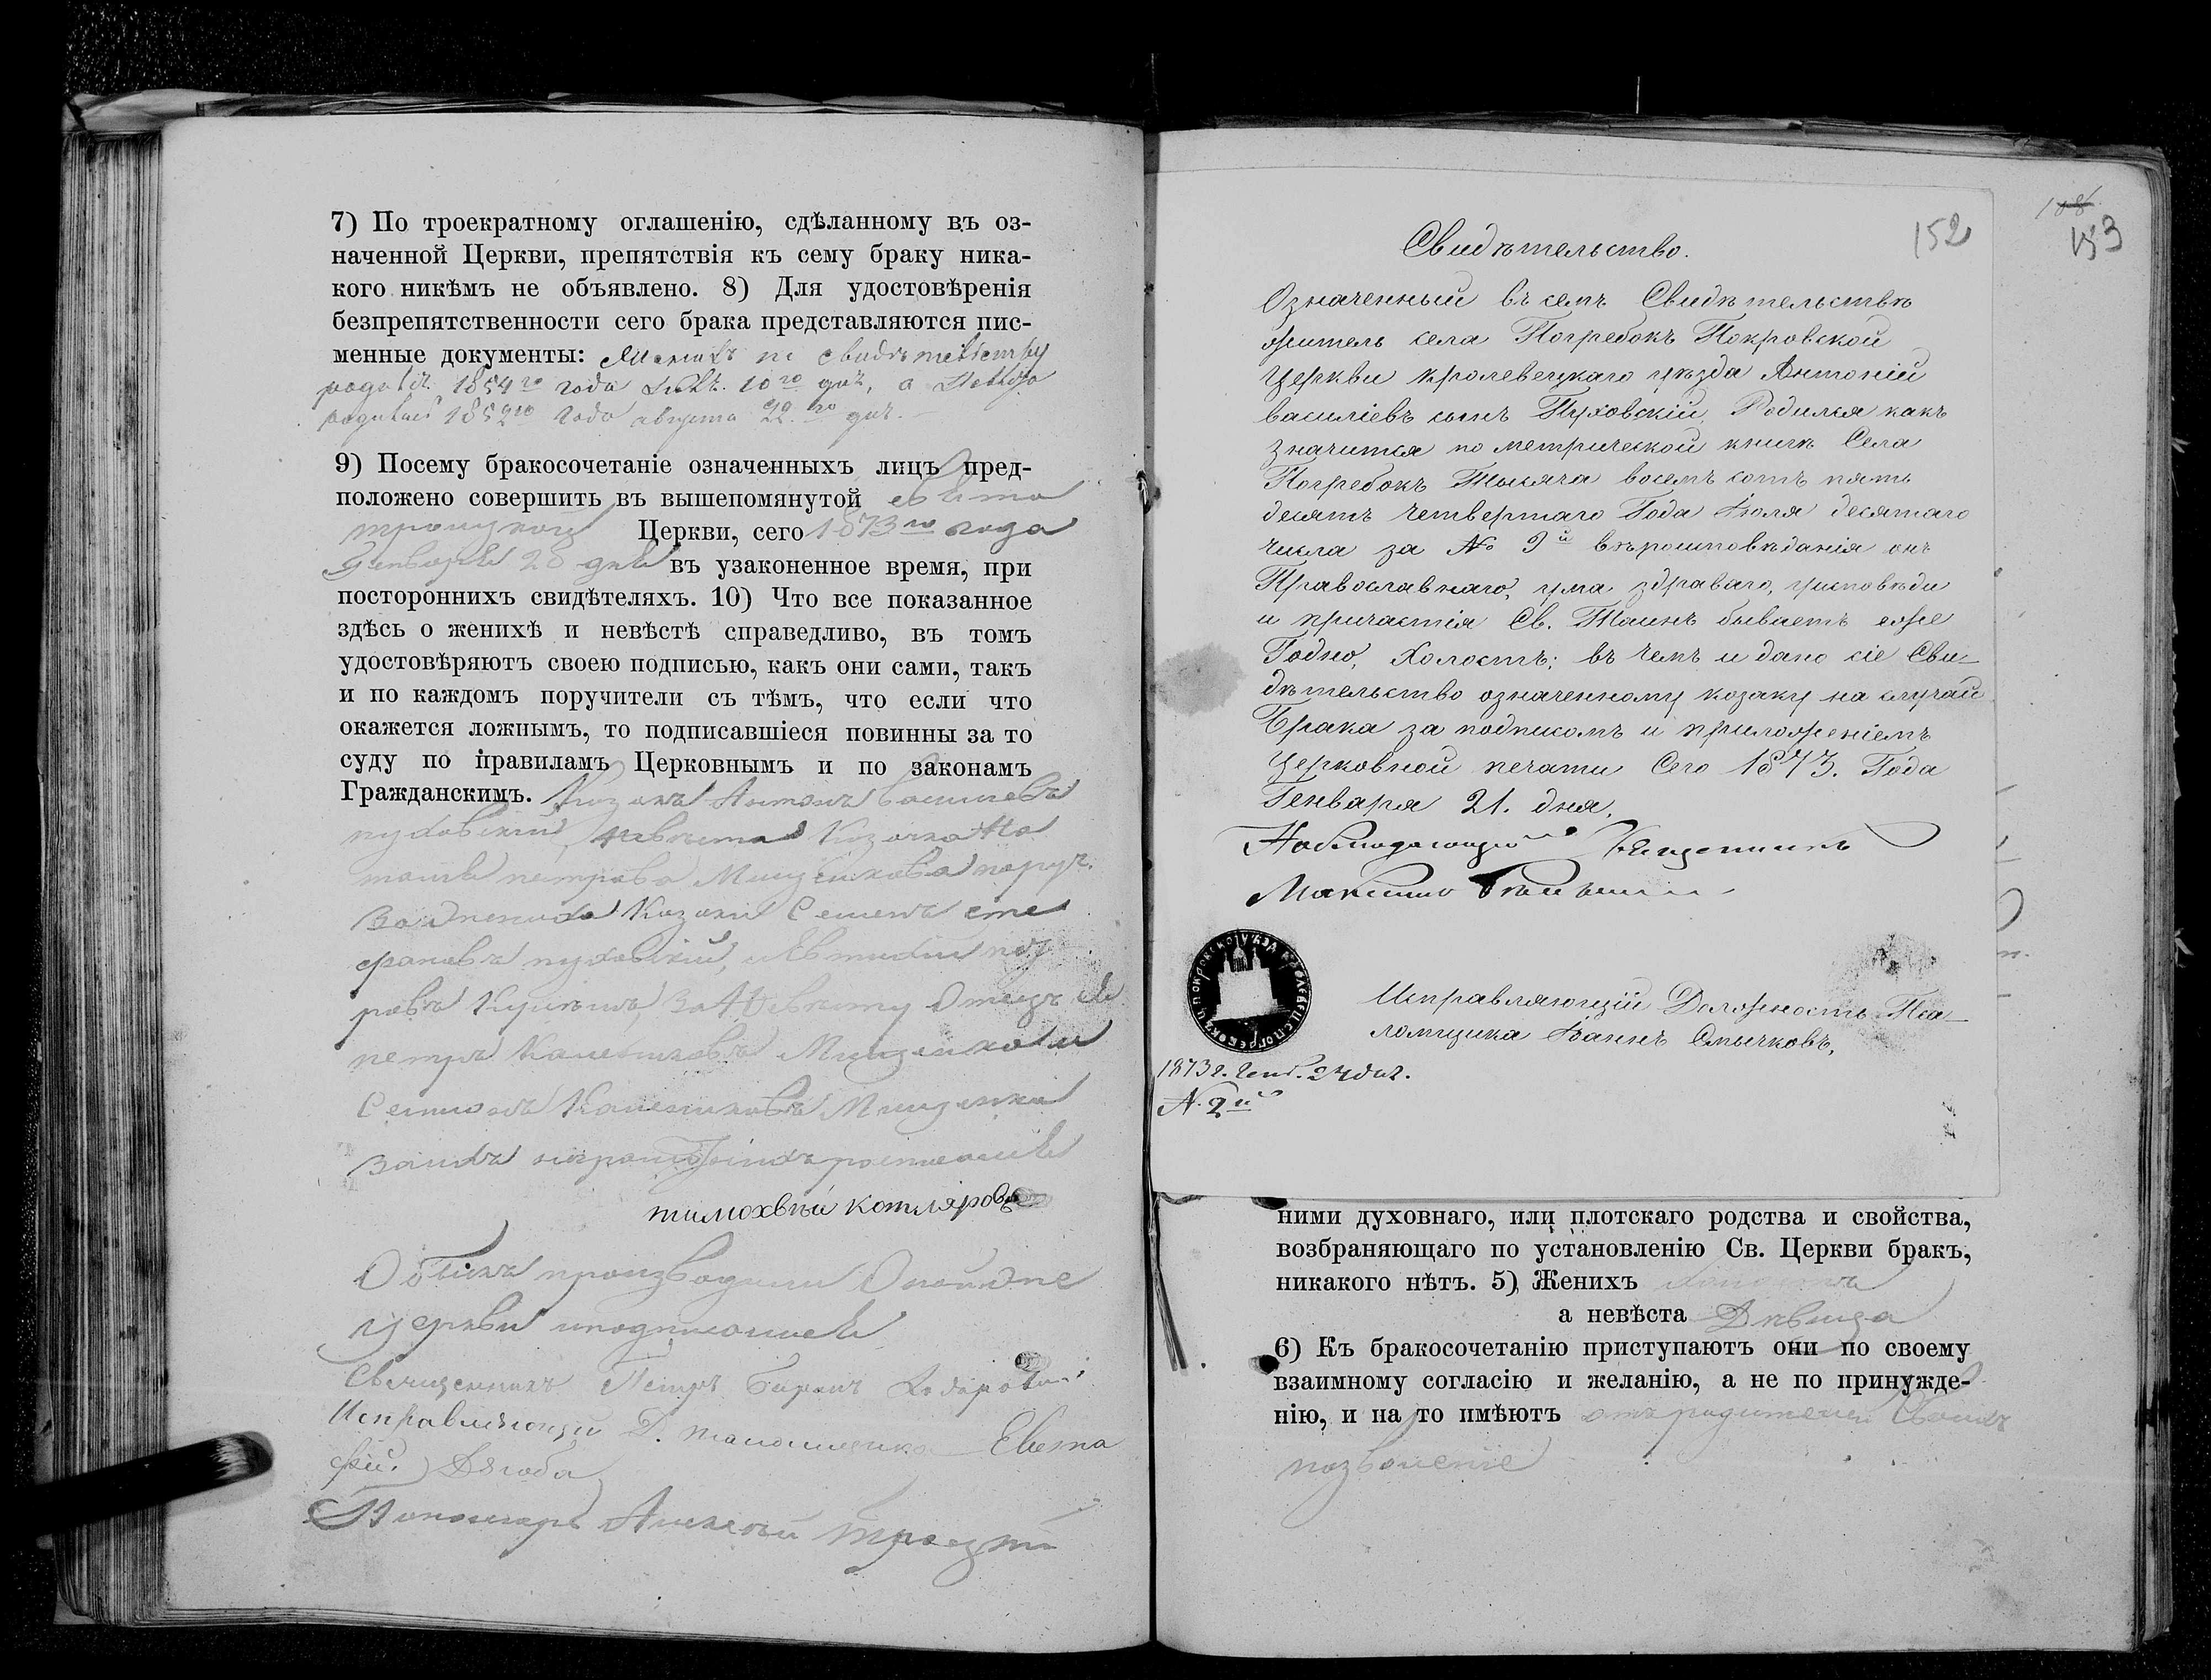 7) По троекратному оглашенію, сдѣланному въ оз-
наченной Церкви, препятствія къ сему браку ника-
кого никѣмъ не объявлено. 8) Для удостовѣренія
безпрепятственности сего брака представляются пис-
менные документы: Женихъ по свидѣтельству
родился 1854го года 10го дня, а невѣста
родилась 1852го года августа 22го дня.
9) Посему бракосочетаніе означенныхъ лицъ пред-
положено совершить въ вышепомянутой свято
троицкой Церкви, сего 1873го года
Генваря 28 дня въ узаконенное время, при
постороннихъ свидѣтеляхъ. 10) Что все показанное
здѣсь о женихѣ и невѣстѣ справедливо, въ томъ
удостовѣряютъ своею подписью, какъ они сами, такъ
и по каждомъ поручители съ тѣмъ, что если что
окажется ложнымъ, то подписавшіеся повинны за то
суду по правиламъ Церковнымъ и по законамъ
Гражданскимъ. Козакъ Антонъ васильевъ
пуховскій, невѣста Козачка На
талія петрова Мищенкова поруч.
за жениха Козаки Семенъ сте
фановъ пуховскій, и Евтихій
ровъ за Невѣсту Отецъ ея
петръ Мищенко и
Мищенко
за ихъ неграмотныхъ росписался
тимохвѣй котляровъ
Обыскъ производили Оной же
церкви и подписались
Священникъ Петръ
Исправляющій Д. псаломщика Евста
фій Дзюба
Пономарь Алексѣй Троцкій
152
153
Свидѣтельство.
Означенный въ семъ Свидѣтельствѣ
житель села Погребокъ Покровской
Церкви кролевецкаго уѣзда Антоній
василіевъ сынъ Пуховскій, Родился какъ
значится по метрической книгѣ Села
Погребокъ Тысяча восемъ сотъ пять
десятъ четвертаго Года Іюля десятаго
числа за № 9й вѣроисповѣданія онъ
Православнаго, ума здраваго, уисповѣди
и причастія Св. Таинъ бываетъ еже
Годно, Холостъ; въ чемъ и дано сіе Сви-
дѣтельство означенному козаку на случай
Брака за подписомъ и приложеніемъ
Церковной печати Сего 1873. Года
Генваря 21. дня.
Наблюдающій Священникъ
Максимъ
Исправляющій Должность Пса-
ломщика Іоаннъ Смычковъ.
1873 г. Генв. 24 дня.
№ 2й
ними духовнаго, или плотскаго родства и свойства,
возбраняющаго по установленію Св. Церкви бракъ,
никакого нѣтъ. 5) Женихъ холостъ
а невѣста Дѣвица
6) Къ бракосочетанію приступаютъ они по своему
взаимному согласію и желанію, а не по принужде-
нію, и на то имѣютъ отъ родителей Своихъ
позволеніе